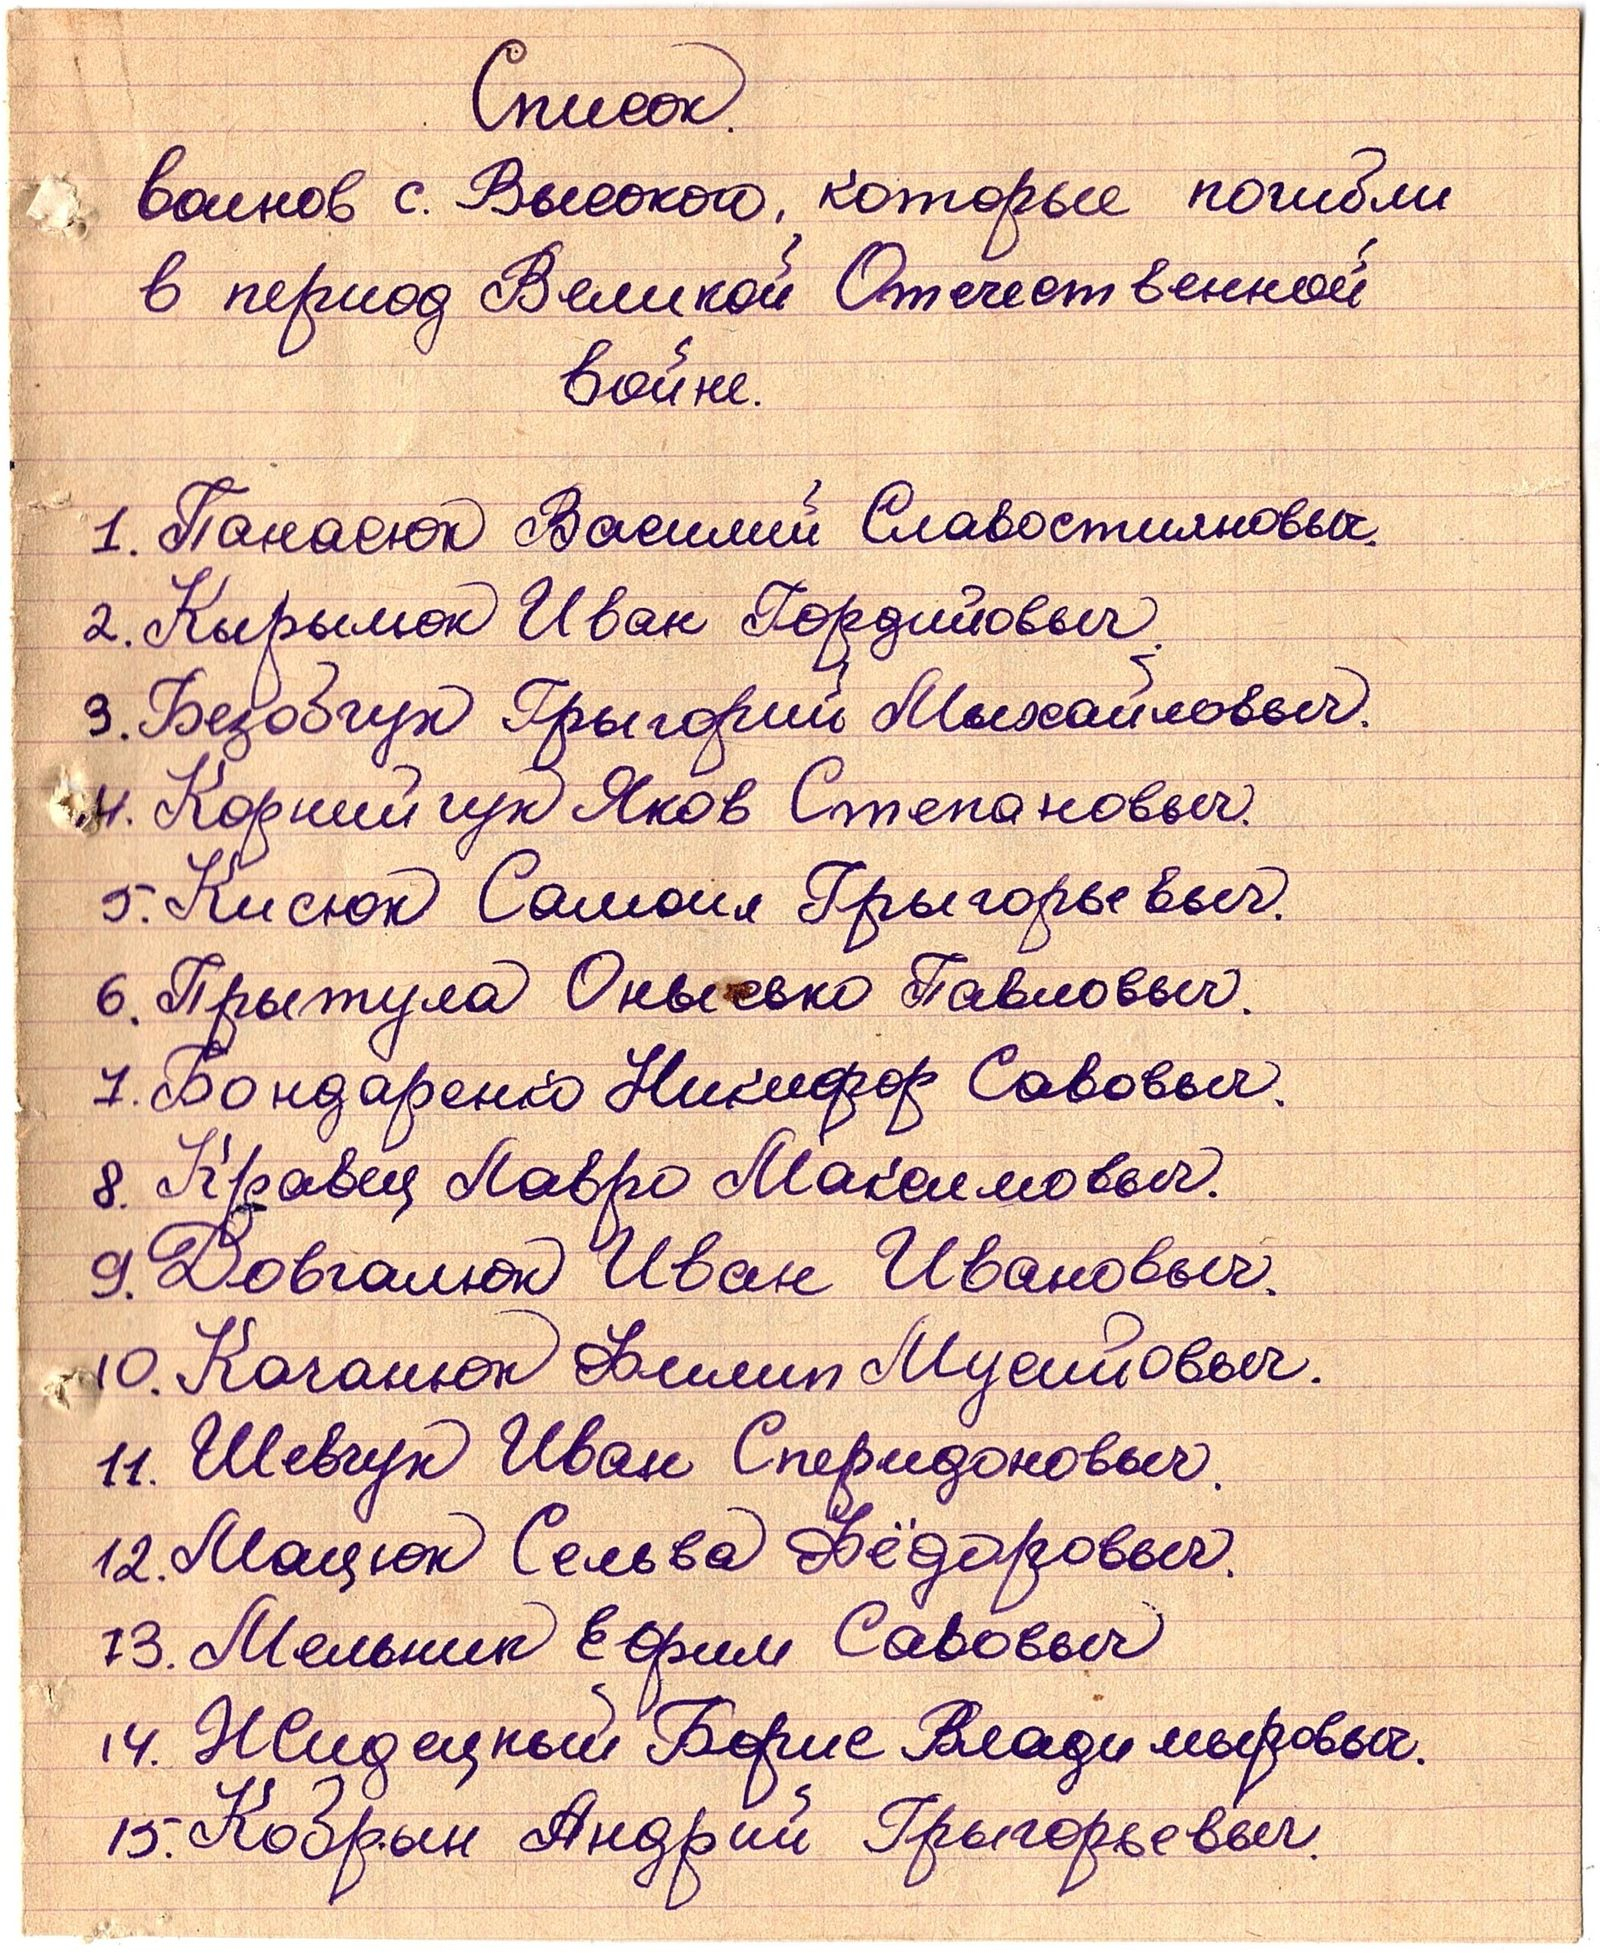 Список.
воинов с. Высокого, которые погибли
в период Великой Отечественной
войне.
1. Панасюк Василий Славостияновыч.
2. Кырылюк Иван Гордийовыч.
3. Безобчук Грыгорий Мыхайловыч.
4. Корнийчук Яков Степановыч.
5. Кисюк Самоил Грыгорьевыч.
6. Прытула Онысько Павловыч.
7. Бондаренко Никифор Савовыч.
8. Кравец Лавро Максимовыч.
9. Довгалюк Иван Ивановыч.
10. Качанюк Филип Мусийовыч.
11. Шевчук Иван Сперидоновыч.
12. Мацюк Сельва Фёдоровыч.
13. Мельник Ефим Савовыч
14. Жидецкый Борис Владимыровыч.
15. Кобрын Андрий Грыгорьевыч.